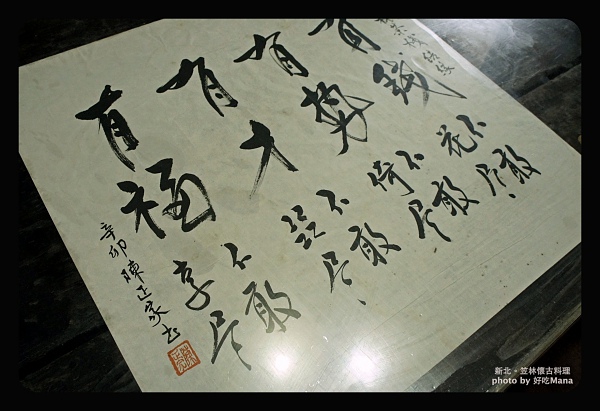 有钱不敢花尽
有势不敢倚尽
有才不敢尽
有福不敢享尽
辛卯陳正家书
新北。笠林懷古料理
photo by 好吃Mana